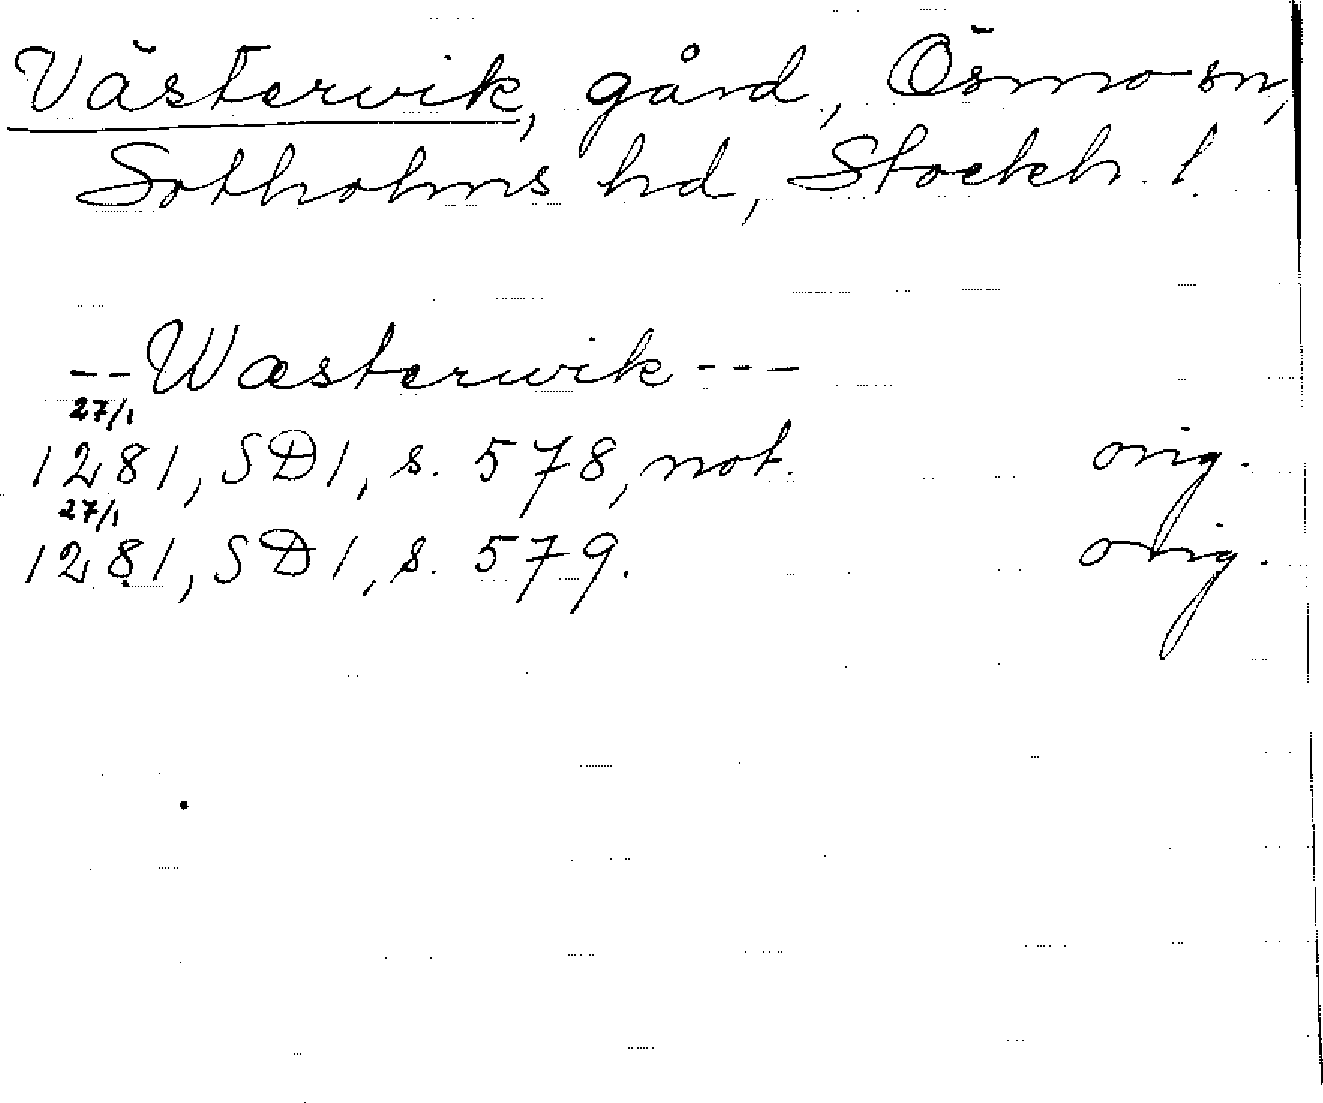 Västervik, gård, Ösmo sn,
Sotholms hd, Stockh. l.
-- Wæsterwik ---
27/1
1281, SD1, s. 578, not. orig.
27/1
1281, SD1, s. 579. orig.